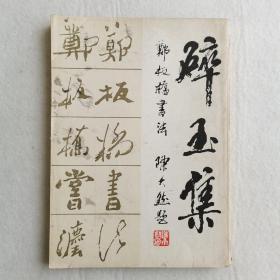 碎玉集
鄭板橋書法 陳大羽題
鄭板橋書法
鄭板橋書法